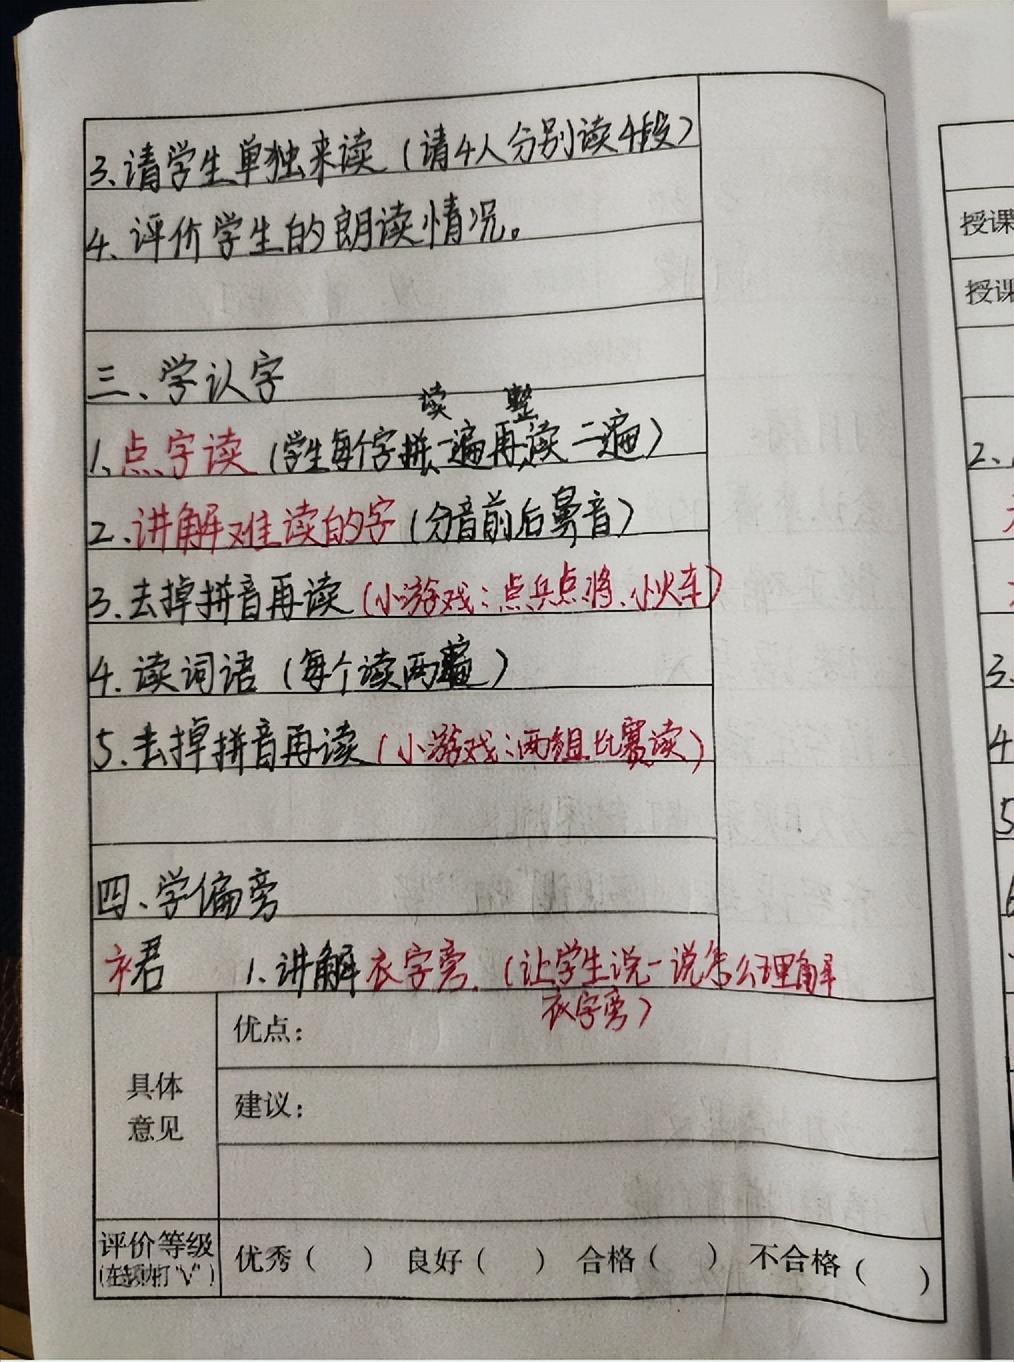 3.请学生单独来读（请4人分别读4段）
4.评价学生的朗读情况。
三、学认字
读 整
1.点字读（学生每个字拼一遍再读二遍）
2.讲解难读的字（分音前后鼻音）
3.去掉拼音再读（小游戏：点兵点将、小火车）
4.读词语（每个读两遍）
5.去掉拼音再读（小游戏：两组比赛读）
四、学偏旁
衤君 1.讲解衣字旁.（让学生说一说怎么理解
衣字旁）
具体
意见
优点：
建议：
评价等级
（在选项内打“√”）
优秀（ ） 良好（ ） 合格（ ） 不合格（ ）
授课
授课
2、
3.
4
5